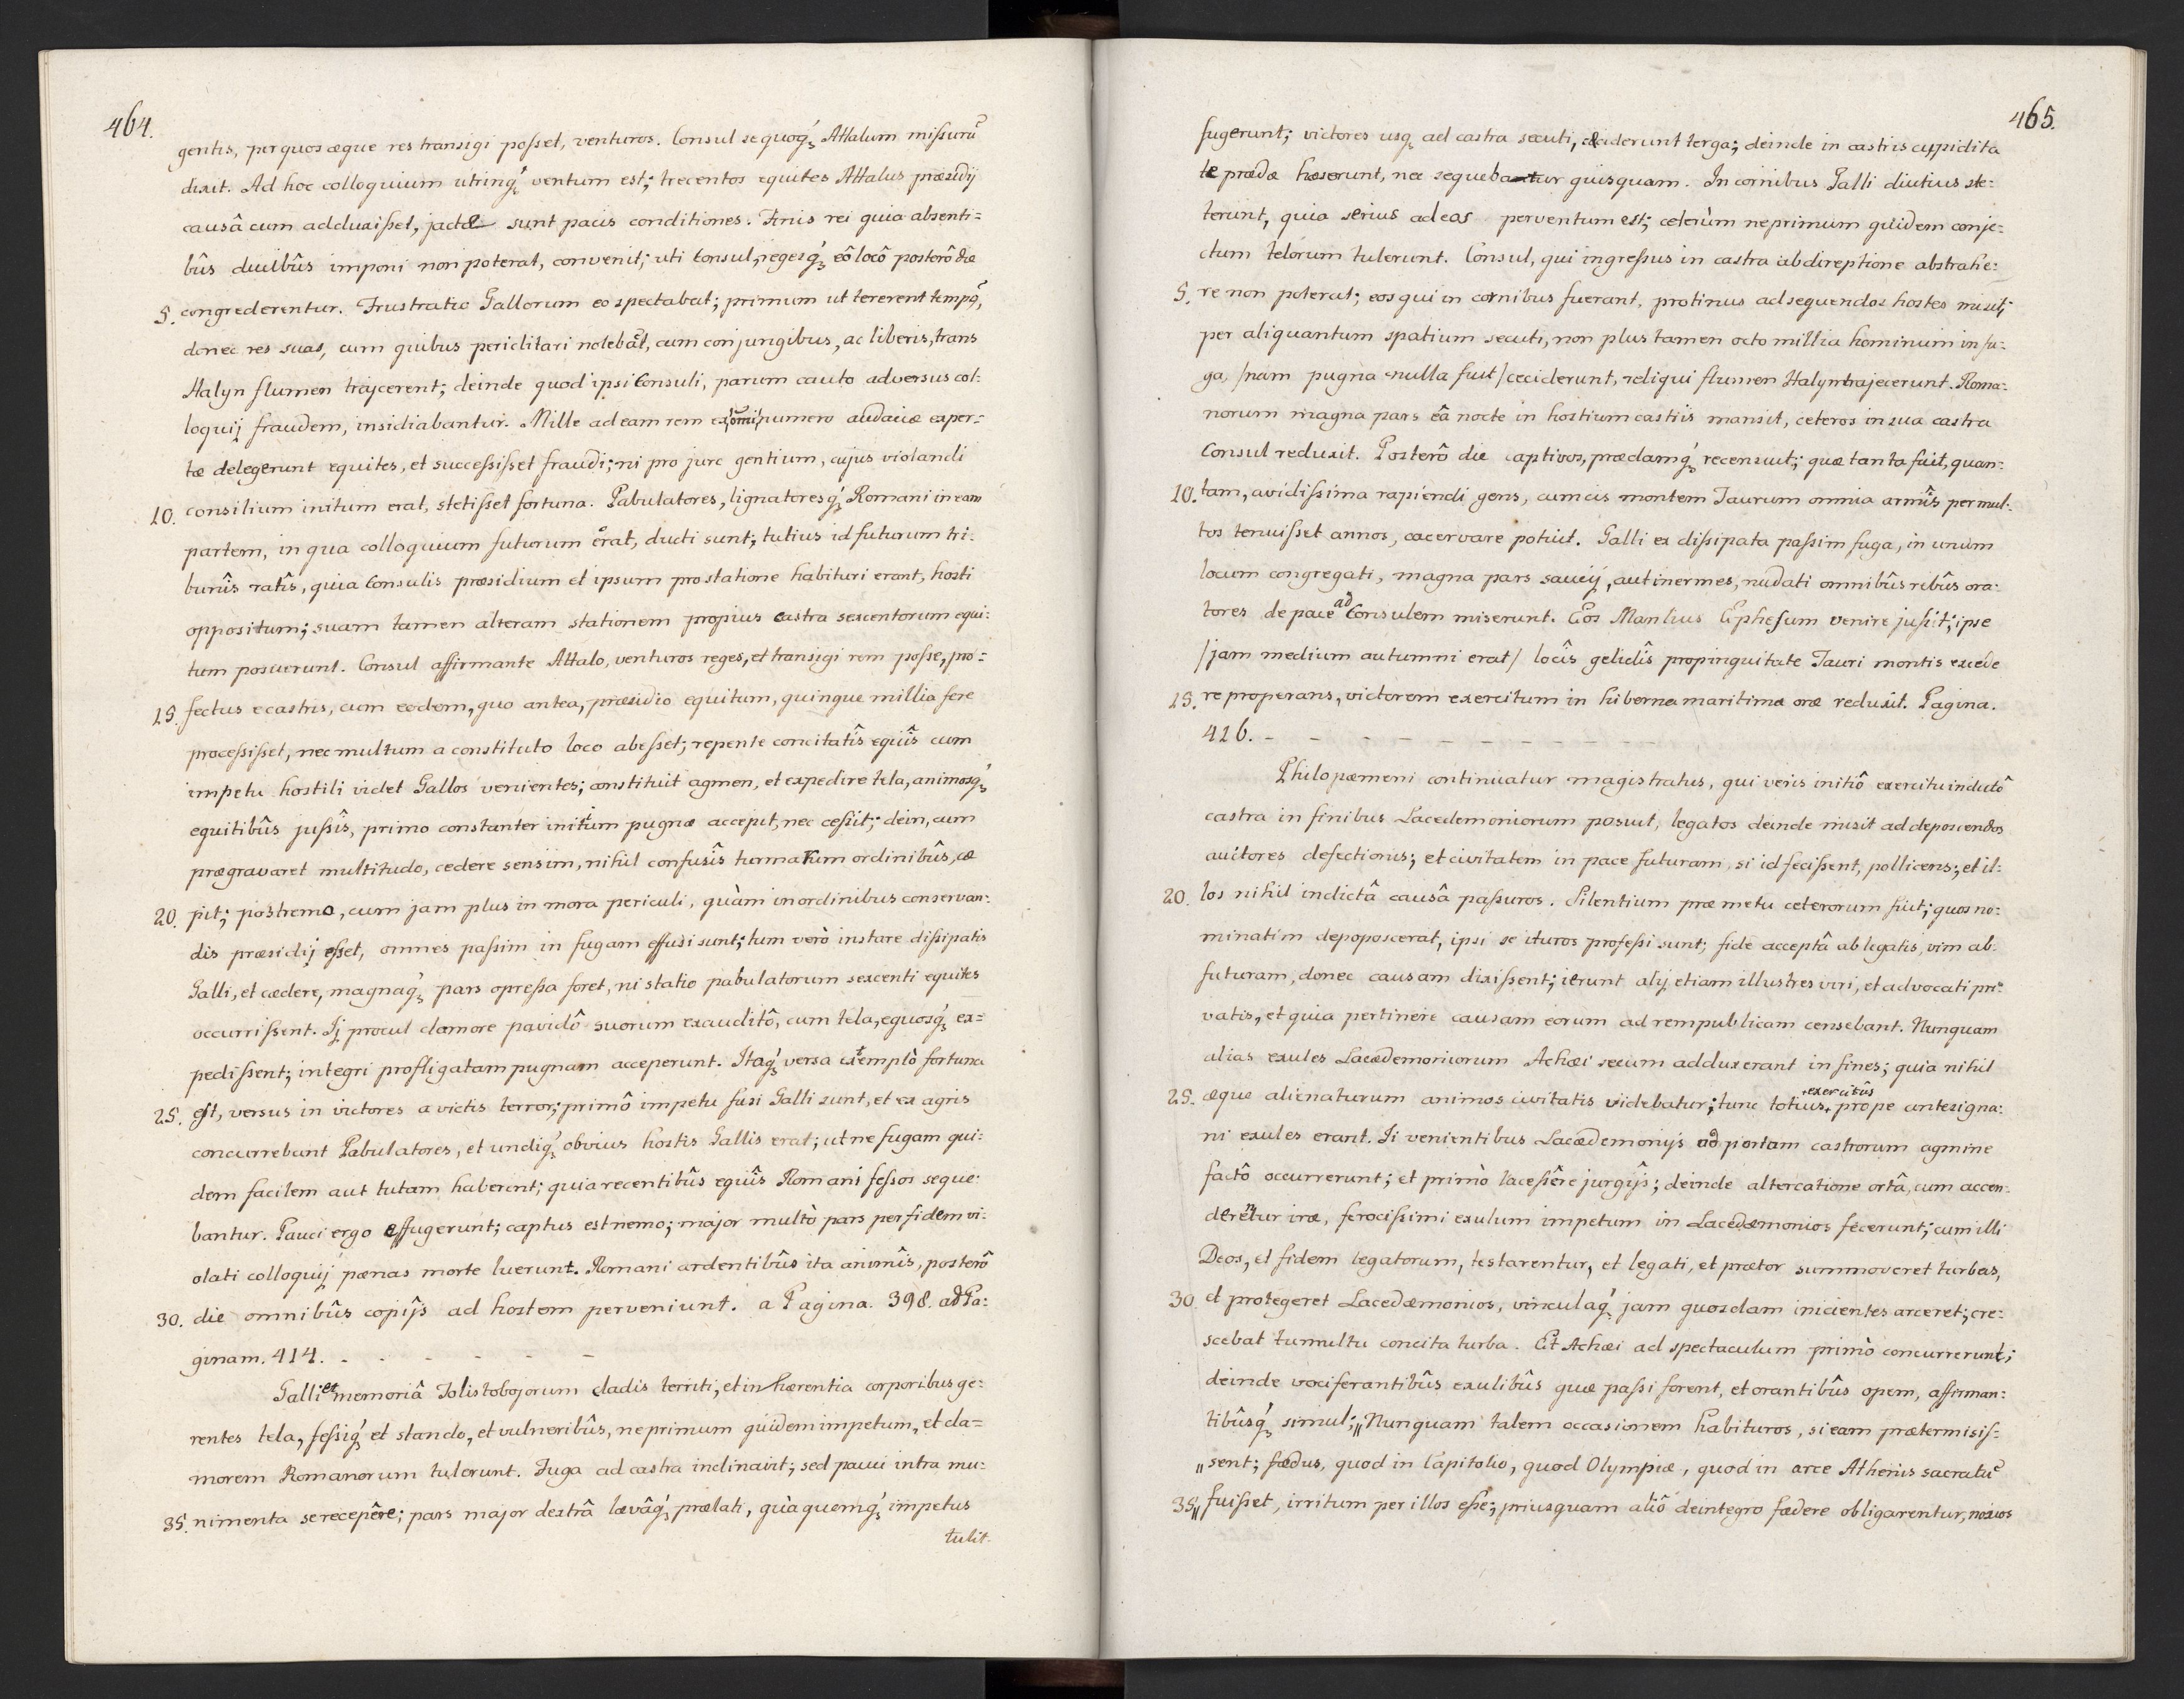 464.
gentis, per quos æque res transigi poſset, venturos. Consul se quoq́ꝫ Attalum miſsurũ
dixit. Ad hoc colloquium utrinq́ꝫ ventum est; trecentos equites Attalus præsidij
causâ cum adduxiſset, jactæ sunt pacis conditiones. Finis rei quia absenti=
bûs ducibûs imponi non poterat, convenit; uti Consul, regesq́ꝫ eô locô posterô die
5. congrederentur. Frustratio Gallorum eo spectabat; primum ut tererent tempꝰ,
donec res suas, cum quibus periclitari nolebãt, cum conjungibus, ac liberis, trans
Halyn flumen trajcerent; deinde quod ipsi Consuli, parum cauto adversus col=
loquij fraudem, insidiabantur. Mille ad eam rem ex omni numero audaciæ exper=
tæ delegerunt equites, et succeſsiſset fraudi; ni pro jure gentium, cujus violandi
10. consilium initum erat, stetiſset fortuna. Pabulatores, lignatoresq́ꝫ Romani in eam
partem, in qua colloquium futurum erat, ducti sunt; tutius id futurum tri=
bunîs ratîs, quia Consulis præsidium et ipsum pro statione habituri erant, hosti
oppositum; suam tamen alteram stationem propius castra sexcentorum equi=
tum posuerunt. Consul affirmante Attalo, venturos reges, et transigi rem poſse, pro=
15. fectus e castris, cum eodem, quo antea, præsidio equitum, quinque millia fere
proceſsiſset, nec multum a constituto loco abeſset; repente concitatîs equîs cum
impetu hostili videt Gallos venientes; constituit agmen, et expedire tela, animosq́ꝫ
equitibûs juſsîs, primo constanter initium pugnæ accepit, nec ceſsit; dein, cum
prægravaret multitudo, cedere sensim, nihil confusîs turmarum ordinibûs, cæ
20. pit; postremo, cum jam plus in mora periculi, quàm in ordinibus conservan=
dis præsidij eſset, omnes paſsim in fugam effusi sunt; tum verò instare diſsipatis
Galli, et cædere, magnaq́ꝫ pars opreſsa foret, ni statio pabulatorum sexcenti equites
occurriſsent. Ij procul clamore pavidô suorum exauditô, cum tela, equosq́ꝫ ex=
pediſsent; integri profligatam pugnam acceperunt. Itaq́ꝫ versa extemplò fortuna
25. eſt, versus in victores a victis terror; primô impetu fusi Galli sunt, et ex agris
concurrebant Pabulatores, et undiq́ꝫ obvius hostis Gallis erat; ut ne fugam qui=
dem facilem aut tutam haberent; quia recentibûs equîs Romani feſsos seque=
bantur. Pauci ergo effugerunt; captus est nemo; major multò pars per fidem vi=
olati colloquij pænas morte luerunt. Romani ardentibûs ita animîs, posterô
30. die omnibûs copijs ad hostem perveniunt. a Pagina. 398. ad Pa=
ginam. 414. - - - - - -
Galli et memoriâ Tolistobojorum cladis territi, et inhærentia corporibus ge=
rentes tela, feſsiq́ꝫ et stando, et vulneribûs, ne primum quidem impetum, et cla=
morem Romanorum tulerunt. Fuga ad castra inclinavit; sed pauci intra mu=
35. nimenta se recepêre; pars major dextrâ lævâq́ꝫ prælati, quà quemq́ꝫ impetus
tulit.
465.
fugerunt; victores usq́ꝫ ad castra secuti, ceciderunt terga; deinde in castris cupidita
te prædæ hæserunt, nec sequebatur quisquam. In cornibus Galli diutius ste=
terunt, quia serius ad eos perventum est; ceterùm ne primum quidem conje=
ctum telorum tulerunt. Consul, qui ingreſsus in castra ab direptione abstrahe=
5. re non poterat; eos qui in cornibus fuerant, protinus ad sequendos hostes misit;
per aliquantum spatium secuti, non plus tamen octo millia hominum in fu=
ga, /nam pugna nulla fuit/ ceciderunt, reliqui flumen Halyn trajecerunt. Roma=
norum magna pars eâ nocte in hostium castris mansit, ceteros in sua castra
Consul reduxit. Posterô die captivos, prædamq́ꝫ recensuit; quæ tanta fuit, quan=
10. tam, avidiſsima rapiendi gens, cum cis montem Taurum omnia armîs per mul=
tos tenuiſset annos, coacervare potuit. Galli ex diſsipata paſsim fuga, in unum
locum congregati, magna pars saucij, aut inermes, nudati omnibûs rebûs ora=
tores de pace ad Consulem miserunt. Eos Manlius Ephesum venire juſsit; ipse
/jam medium autumni erat/ locîs gelidîs propinquitate Tauri montis excede
15. re properans, victorem exercitum in hiberna maritimæ oræ reduxit. Pagina.
416. - - - - - - - - - -
Philopæmeni continuatur magistratus, qui veris initiô exercitu indutô
castra in finibus Lacedemoniorum posuit, legatos deinde misit ad deposcendos
auctores defectionis; et civitatem in pace futuram, si id feciſsent, pollicens; et il=
20. los nihil indictâ causâ paſsuros. Silentium præ metu ceterorum fuit; quos no=
minatim depoposcerat, ipsi se ituros profeſsi sunt; fide acceptâ ab legatis, vim ab=
futuram, donec causam dixiſsent; ierunt alij etiam illustres viri, et advocati pri=
vatis, et quia pertinere causam eorum ad rempublicam censebant. Nunquam
alias exules Lacædemoniorum Achæi secum adduxerant in fines; quia nihil
25. æque alienaturum animos civitatis videbatur; tunc totius exercitûs prope antesigna=
ni exules erant. Ii venientibus Lacædemonijs ad portam castrorum agmine
factô occurrerunt; et primò laceſsêre jurgijs; deinde altercatione ortâ, cum accen=
derentur iræ, ferociſsimi exulum impetum in Lacedæmonios fecerunt; cum illi
Deos, et fidem legatorum, testarentur, et legati, et prætor summoveret turbas,
30. et protegeret Lacedæmonios, vinculaq́ꝫ jam quosdam inicientes arceret; cre=
scebat tumultu concita turba. Et Achæi ad spectaculum primò concurrerunt;
deinde vociferantibûs exulibûs quæ paſsi forent, et orantibûs opem, affirman=
tibûsq́ꝫ simul; „Nunquam talem occasionem habituros, si eam prætermisiſ=
„sent; fædus, quod in Capitolio, quod Olympiæ, quod in arce Athenis sacratũ
35. „fuiſset, irritum per illos eſse; priusquam aliô deintegro fædere obligarentur, noxios